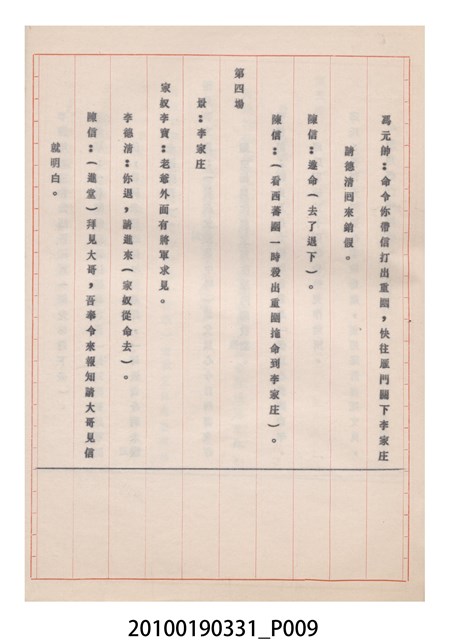 馮元帥：命令你帶信打出重圍，快往雁門關下李家庄
請德清囘來銷假。
陳信：遵命（去了退下）。
陳信：（看西蕃圍一時殺出重圍拖命到李家庄）。
第四場
景：李家庄
家奴李寶：老爺外面有將軍求見。
李德清：你退，請進來（家奴從命去）。
陳信：（進堂）拜見大哥，吾奉令來報知請大哥見信
就明白。
20100190331_P009